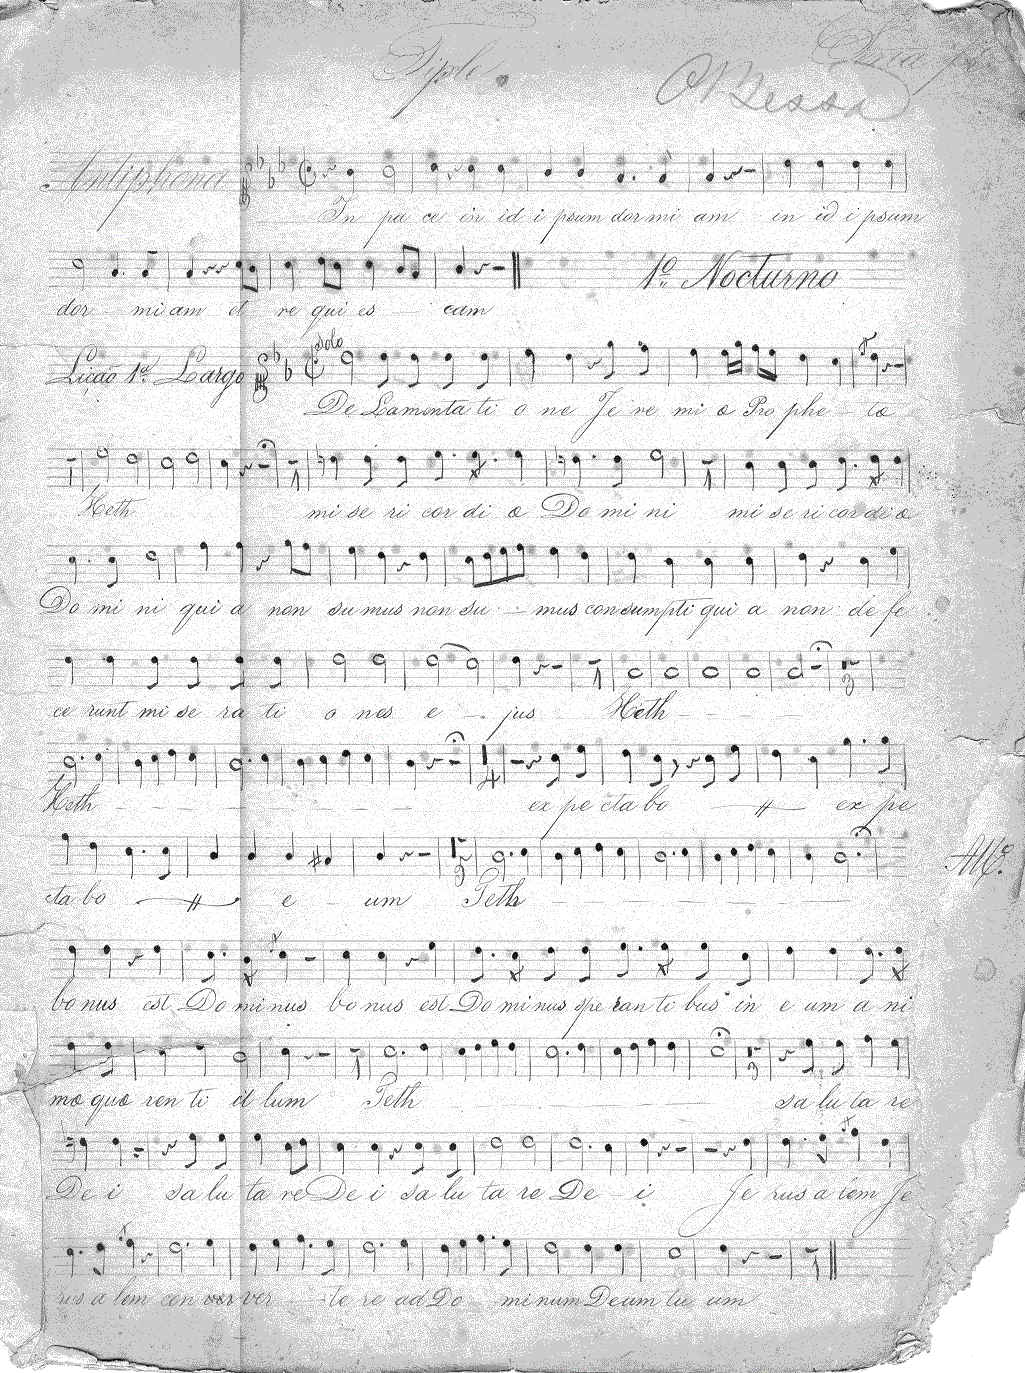 Tiple
Bessa
Antiphona
In pa ce in id i psum dor mi am in id i psum
1º Nocturno
dor mi am et re qui es cam
Solo
Lição 1ª Largo
De Lamenta ti o ne Je re mi æ Pro phe tæ
Heth mi se ri cor di æ Do mi ni mi se ri cor di æ
Do mi ni qui a non su mus non su mus con sumpti qui a non de fe
ce runt mi se ra ti o nes e jus Heth
Heth ex pe cta bo ex pe
cta bo e um Teth
All.º
bo nus est Do mi nus bo nus est Do mi nus spe ran ti bus in e um a ni
mæ quæ ren ti il lum Teth sa lu ta re
De i sa lu ta re De i sa lu ta re De i Je rus a lem Je
rus a lem con ver te re ad Do minum Deum tu um